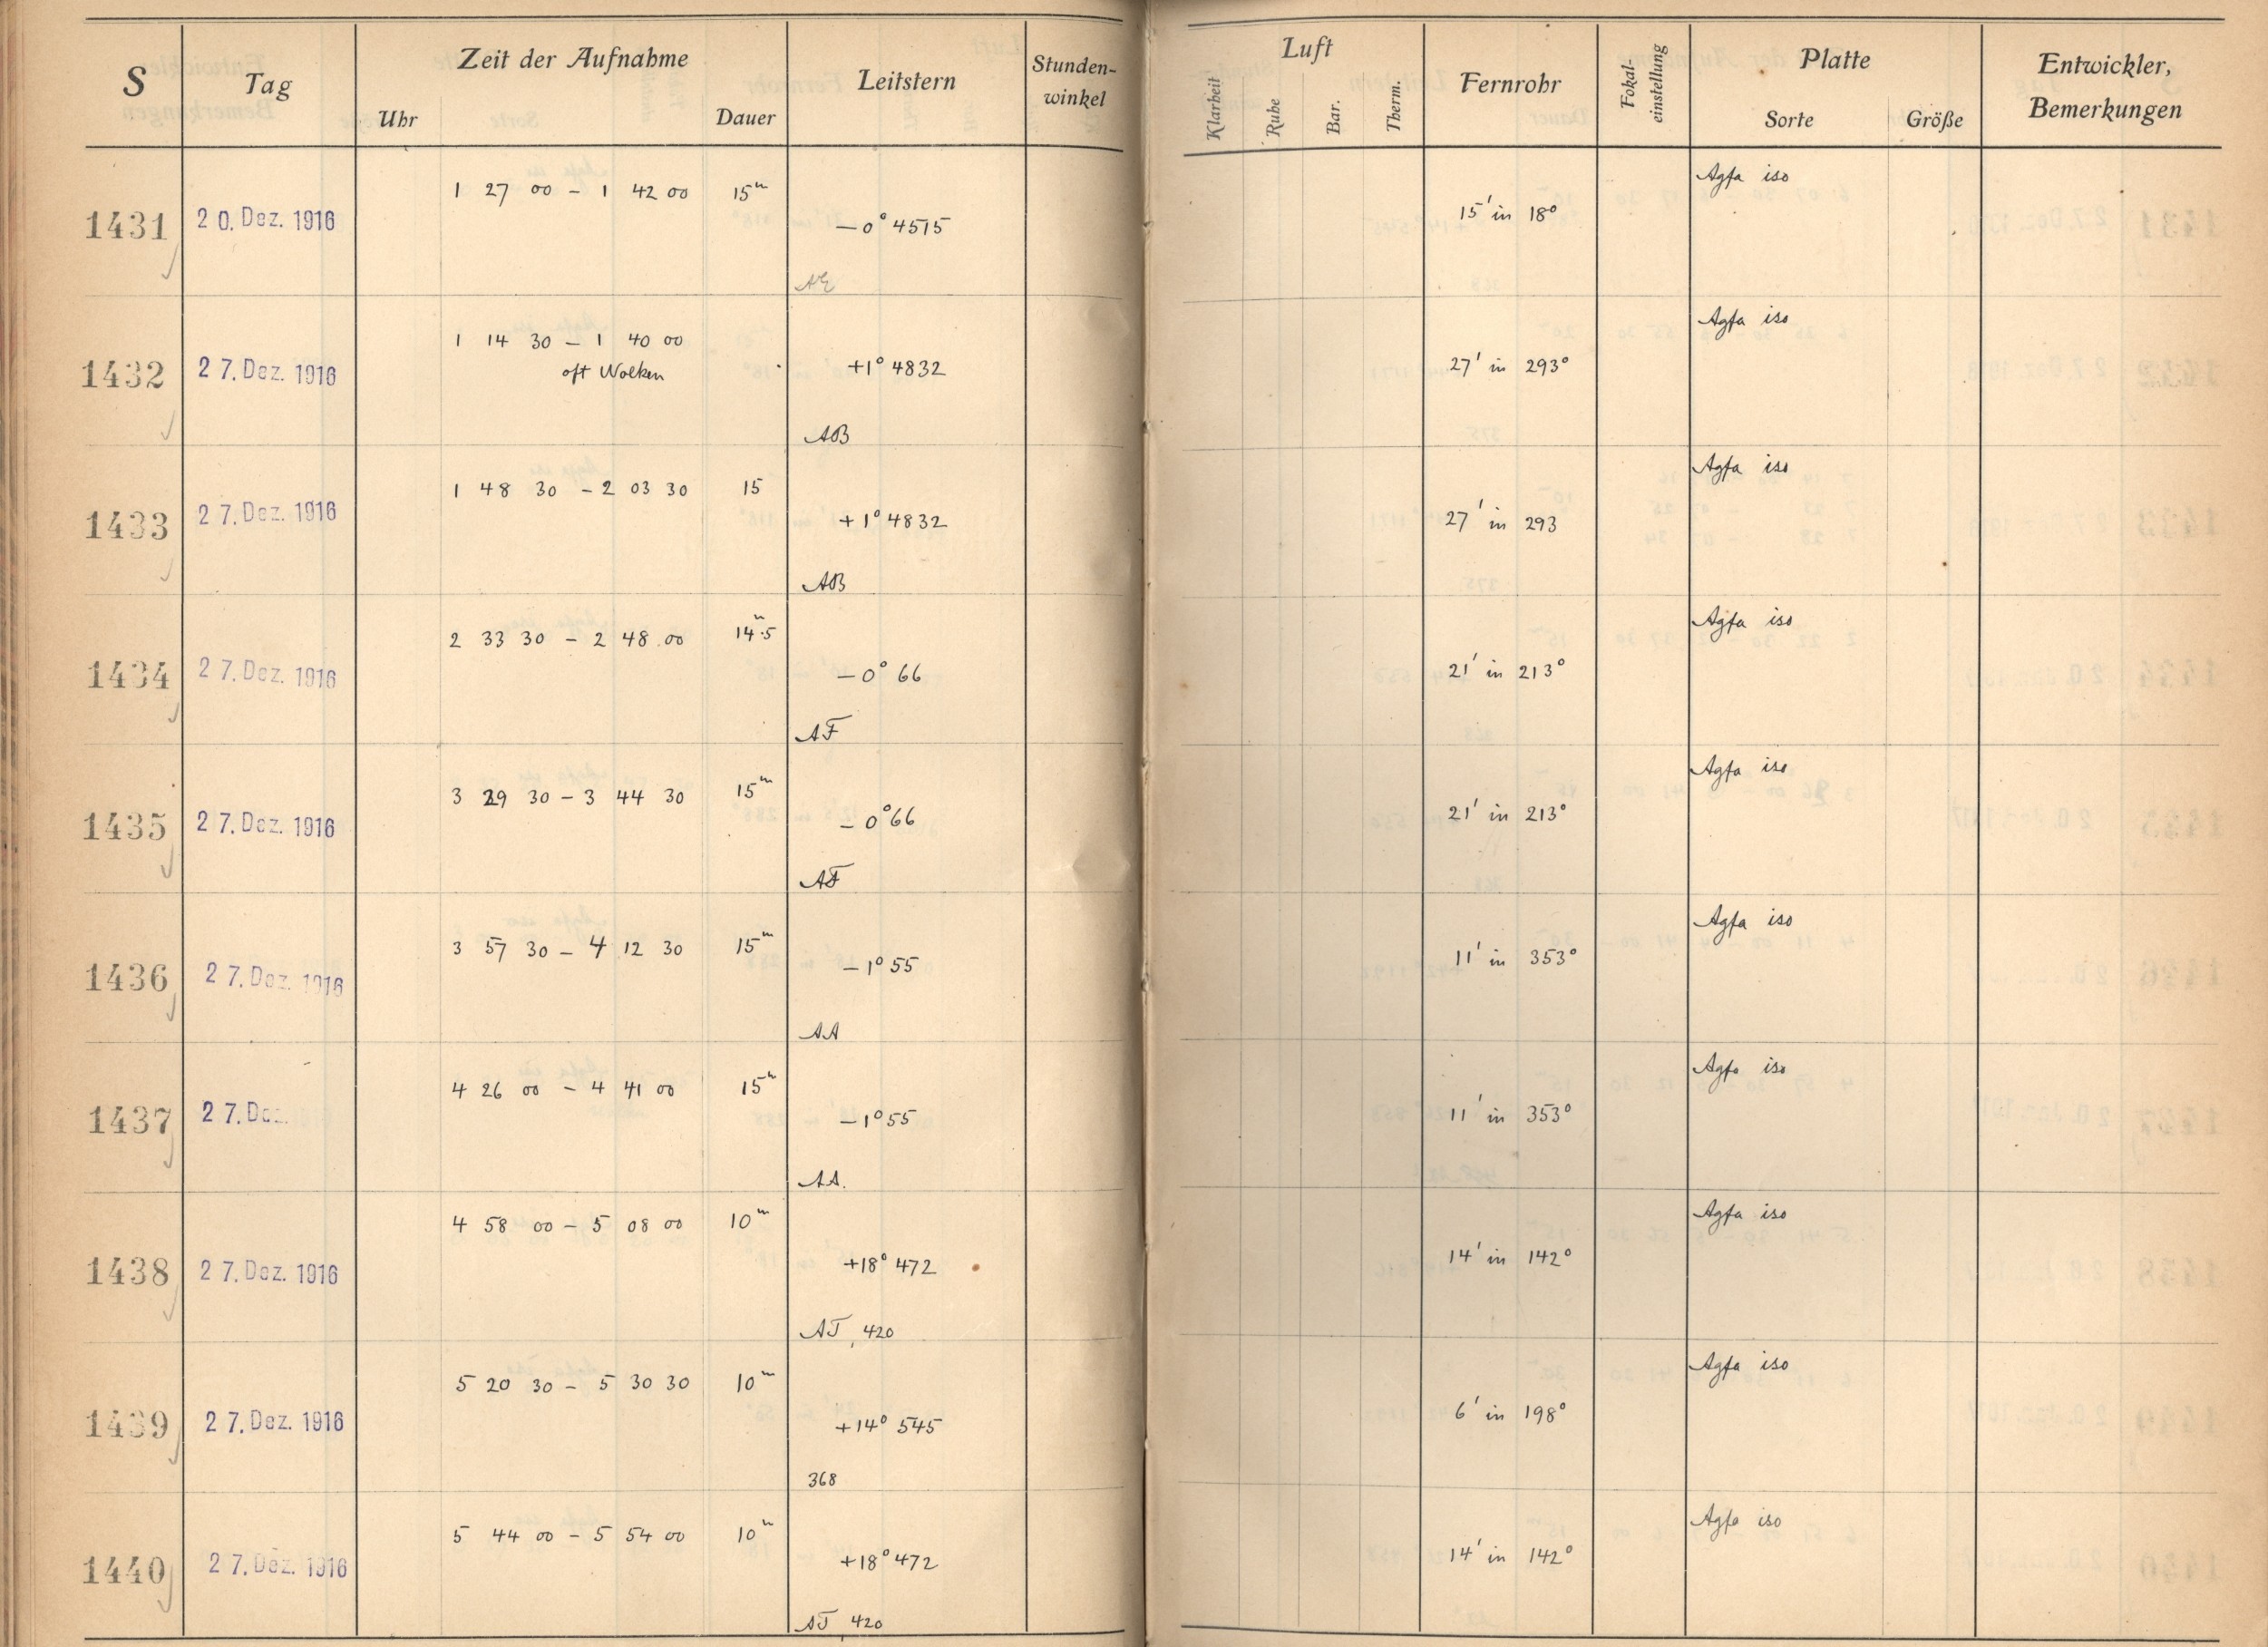 S Tag Zeit der Aufnahme Uhr Dauer Leitstern Stunden-winkel Luft Klarheit Ruhe Bar. Therm. Fernrohr Fokal-einstellung Platte Sorte Größe Entwickler, Bemerkungen
1431 20. Dez. 1916 1 27 00 – 1 42 00 15m –0° 4515 AE 15' in 18° Agfa iso
1432 27. Dez. 1916 1 14 30 – 1 40 00 oft Wolken +1° 4832 AB 27' in 293° Agfa iso
1433 27. Dez. 1916 1 48 30 – 2 03 30 15 +1° 4832 AB 27' in 293 Agfa iso
1434 27. Dez. 1916 2 33 30 – 2 48 00 14m.5 –0° 66 AF 21' in 213° Agfa iso
1435 27. Dez. 1916 3 29 30 – 3 44 30 15m –0° 66 AF 21' in 213° Agfa iso
1436 27. Dez. 1916 3 57 30 – 4 12 30 15m –1° 55 AA 11' in 353° Agfa iso
1437 27. Dez. 4 26 00 – 4 41 00 15m –1° 55 AA. 11' in 353° Agfa iso
1438 27. Dez. 1916 4 58 00 – 5 08 00 10m +18° 472 AJ, 420 14' in 142° Agfa iso
1439 27. Dez. 1916 5 20 30 – 5 30 30 10m +14° 545 368 6' in 198° Agfa iso
1440 27. Dez. 1916 5 44 00 – 5 54 00 10m +18° 472 AJ, 420 14' in 142° Agfa iso